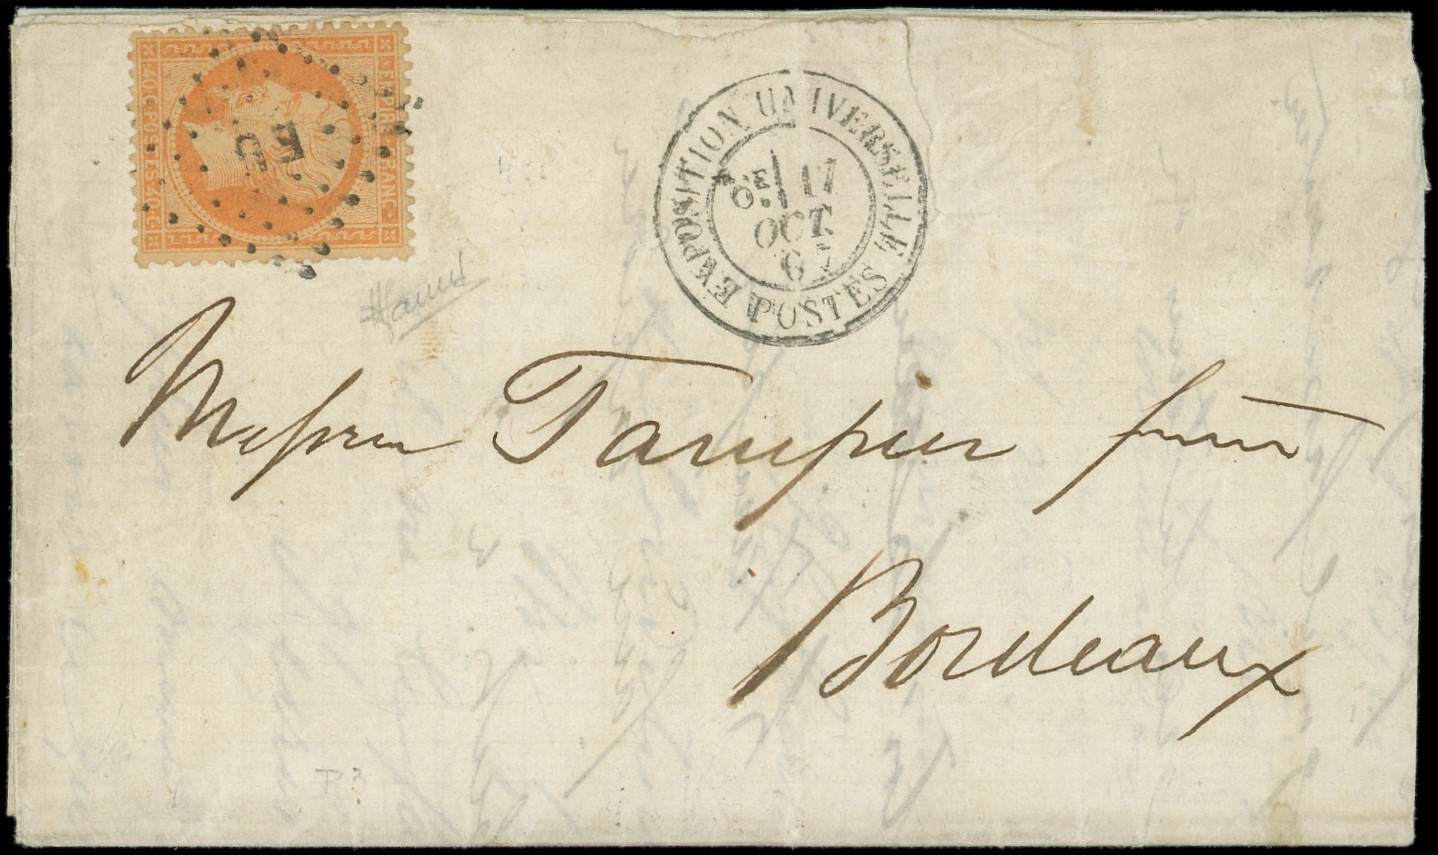 EMPIRE FRANC
40 C POSTES 40 C
EU
EXPOSITION UNIVERSELLE
6E 17
OCT.
67
POSTES
Messieu Tampier frères
Bordeaux